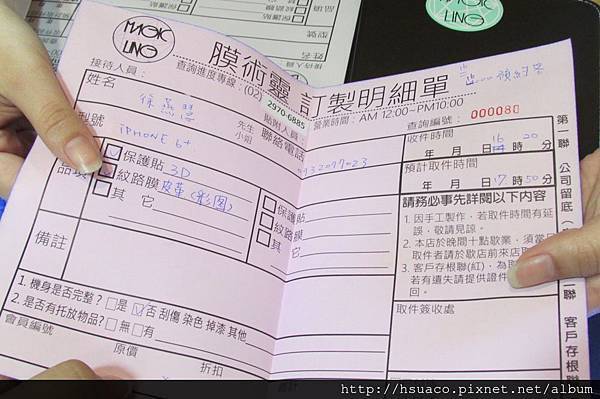 MAGIC
LING
膜術靈 訂製明細單
查詢進度專線：(02) 2970-6885
營業時間：AM 12:00~PM10:00
接待人員：
貼附人員：
查詢編號：000080
姓名
先生
小姐
聯絡電話
型號 iPHONE 6+
收件時間
年 月 日 時 分
16 20
預計取件時間
年 月 日 17 時 50 分
品項
保護貼 3D
紋路膜 皮革(彩圖)
其 它
保護貼
紋路膜
其 它
請務必事先詳閱以下內容
1. 因手工製作，若取件時間有延
誤，敬請見諒。
2. 本店於晚間十點歇業，須當日
取件者請於歇店前來店取
3. 客戶存根聯(紅)，為取
若有遺失請提供證件
回。
備註
1. 機身是否完整？ 是 否 刮傷 染色 掉漆 其他
2. 是否有托放物品？ 無 有
取件簽收處
會員編號
原價
折扣
第一聯 公司留底
聯 客戶存根聯
http://hsuaco.pixnet.net/album